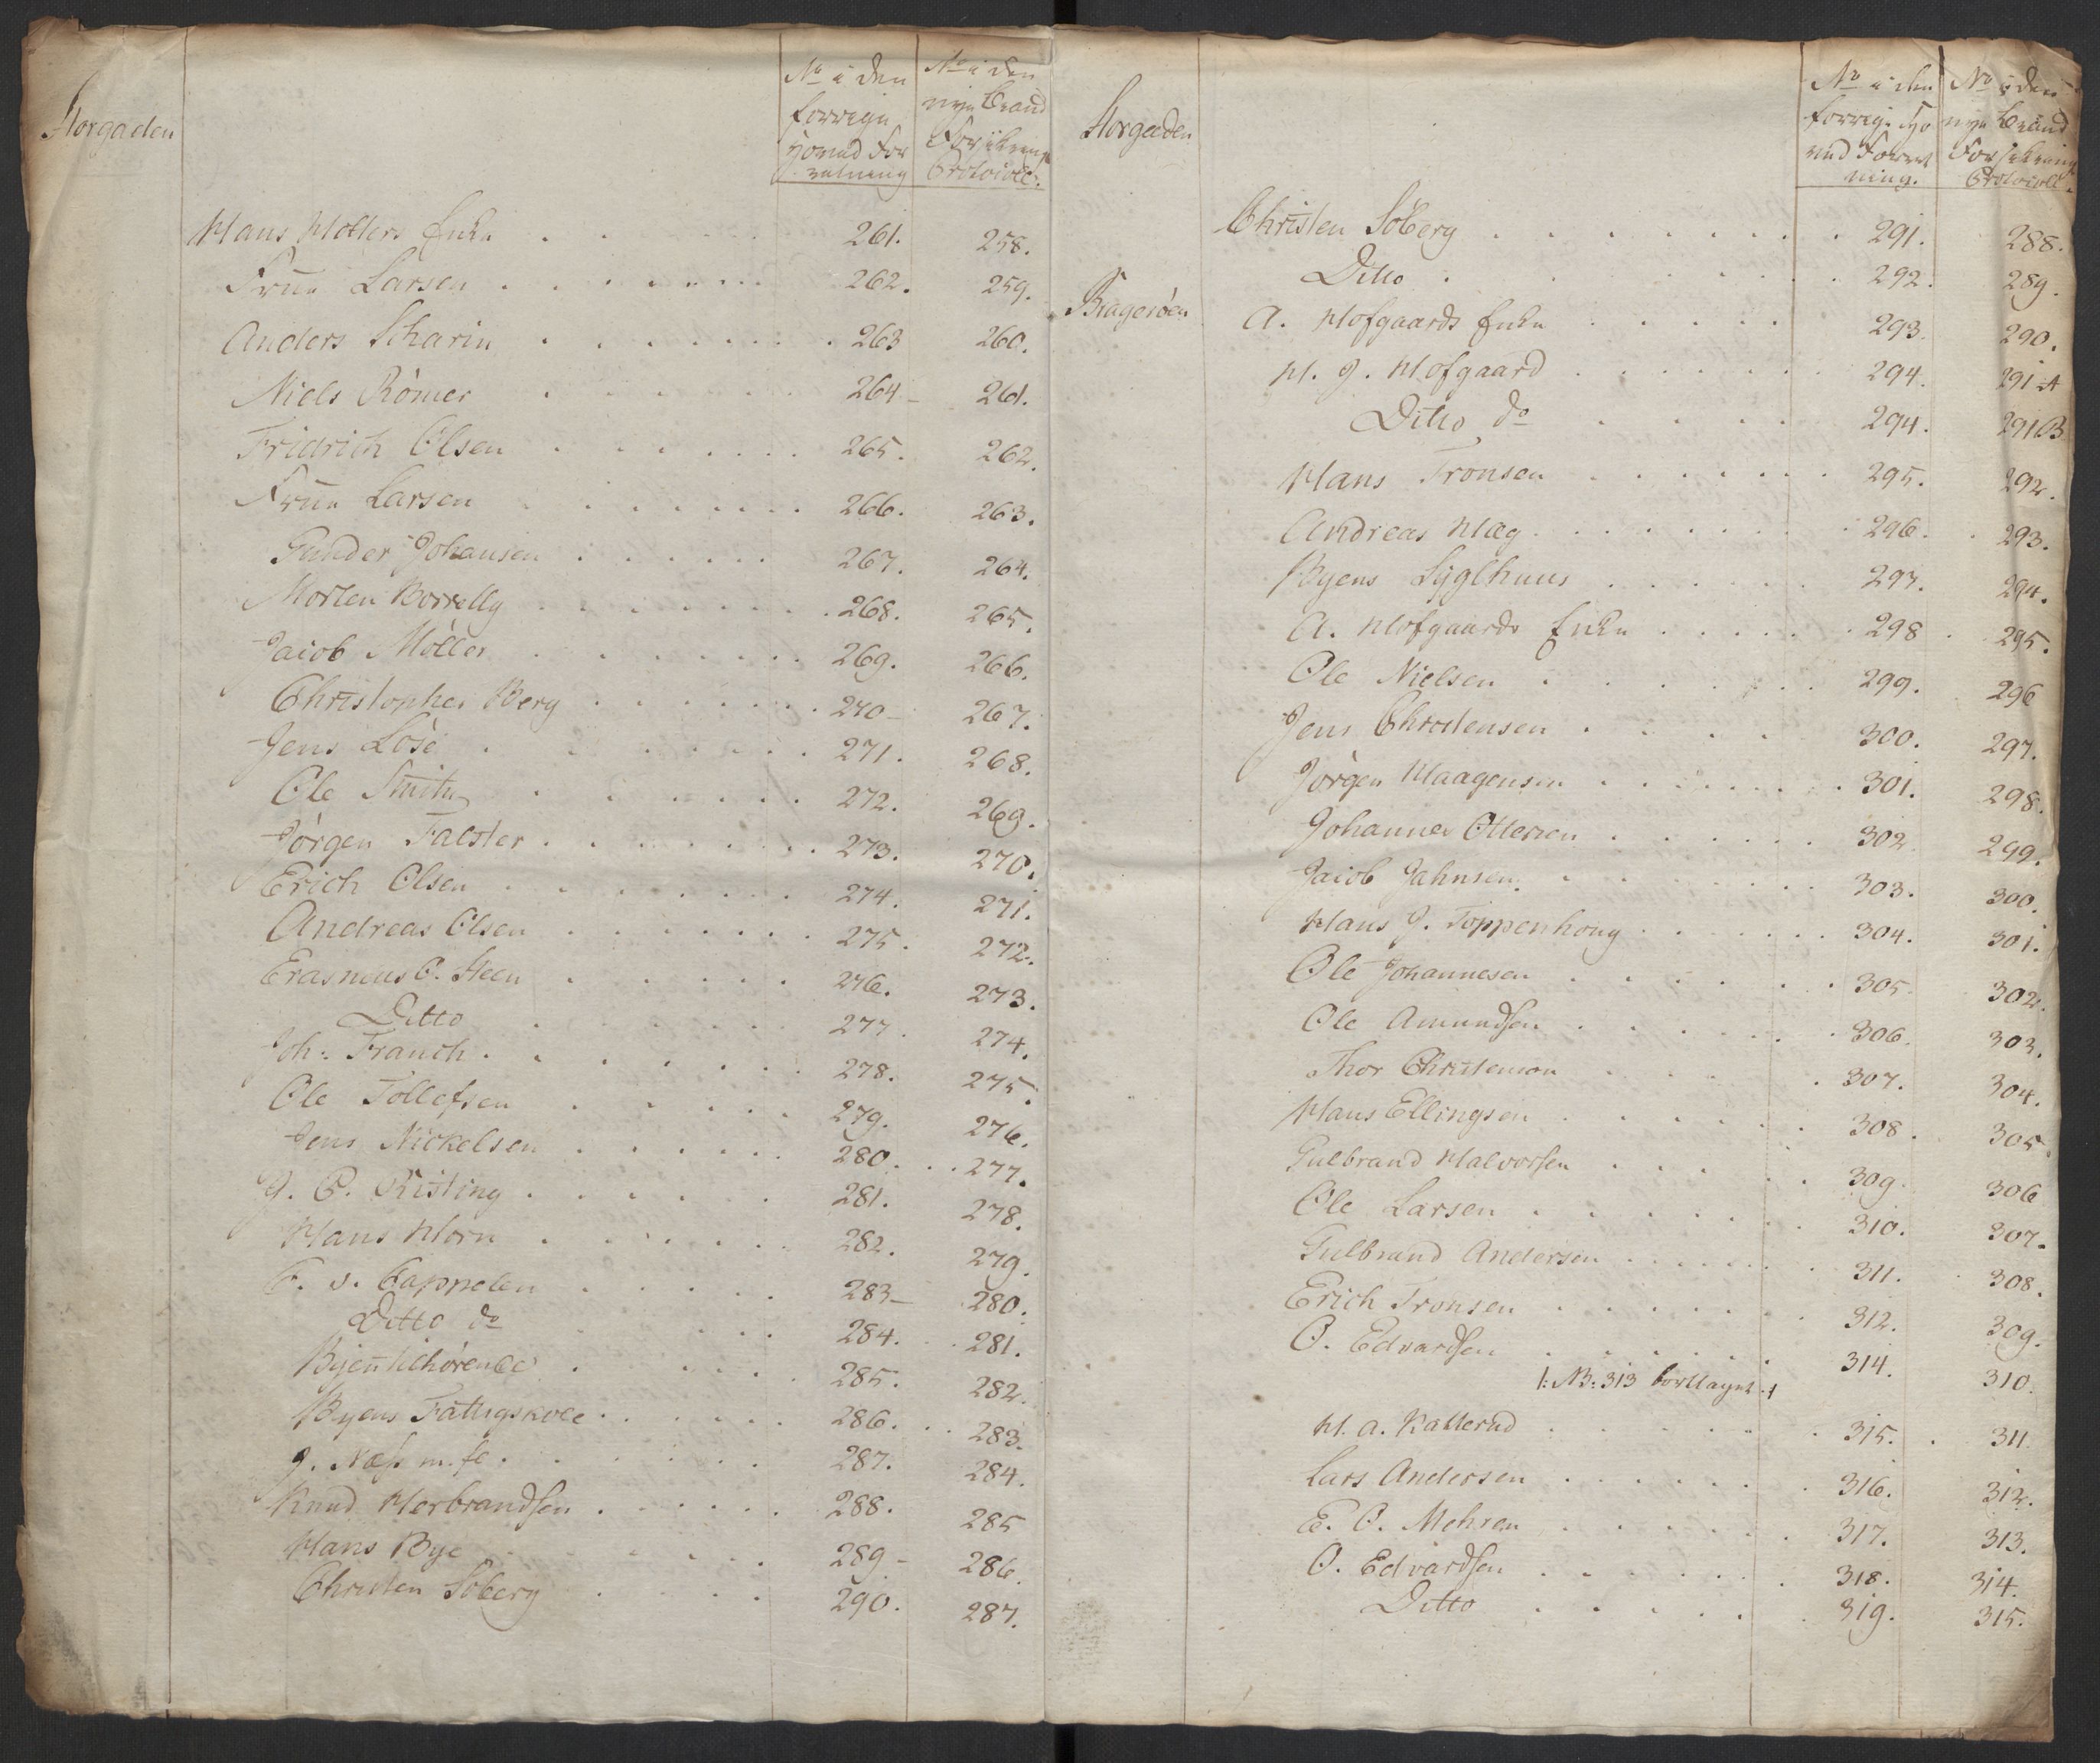 Storgaden
No i den
forrige
Hoved For
retning
No i den
nye Brand
Forsikrings
Protocoll.
Hans Møllers Enke 261. 258.
Frue Larsen 262. 259.
Anders Scharin 263 260.
Niels Römer 264 261.
Fridrich Olsen 265. 262.
Frue Larsen 266. 263.
Gunder Johansen 267. 264.
Morten Borrelly 268. 265.
Jacob Möller 269. 266.
Christopher Berg 270 267.
Jens Löse 271. 268.
Ole Smith 272. 269.
Jörgen Falster 273. 270.
Erich Olsen 274. 271.
Andreas Olsen 275. 272.
Erasmus C. Steen 276. 273.
Ditto 277. 274.
Joh: Franch 278. 275.
Ole Tollefsen 279. 276.
Jens Nickelsen 280. 277.
J. P. Risting 281. 278.
Hans Horn 282. 279.
P. v. Cappelen 283 280.
Ditto do 284. 281.
285. 282.
Byens Fattigskole 286. 283.
J. Næss m. fl. 287. 284.
Knud Herbrandsen 288. 285
Hans Bye 289 286.
Christen Soberg 290. 287.
Storgaden
No i den
forrige Ho
ved Forret
ning.
No i den
nye Brand
Forsikrings
Protocoll.
Christen Söberg 291. 288.
Ditto 292. 289.
Bragerøen
A. Hofgaards Enke 293. 290.
H. J. Hofgaard 294. 291 A
Ditto do 294. 291 B
Hans Tronsen 295. 292.
Andreas Hæg 296. 293.
Byens Sÿglhuus 297. 294.
A. Hofgaards Enke 298 295.
Ole Nielsen 299. 296
Jens Christensen 300. 297.
Jörgen Haagensen 301. 298.
Johannes Ottersen 302 299.
Jacob Jahnsen 303. 300.
Hans J. Toppenhoug 304. 301.
Ole Johannesen 305. 302.
Ole Amundsen 306. 303.
Thor Christenson 307. 304.
Hans Ellingsen 308. 305.
Gulbrand Halvorsen 309 306
Ole Larsen 310. 307.
Gulbrand Andersen 311. 308.
Erich Tronsen 312. 309.
O. Edvardsen 314. 310.
/: NB: 313 borttaget :/
H. A. Katterud 315. 311.
Lars Andersen 316. 312.
E. O. Mehren 317. 313.
O. Edvardsen 318. 314.
Ditto 319. 315.